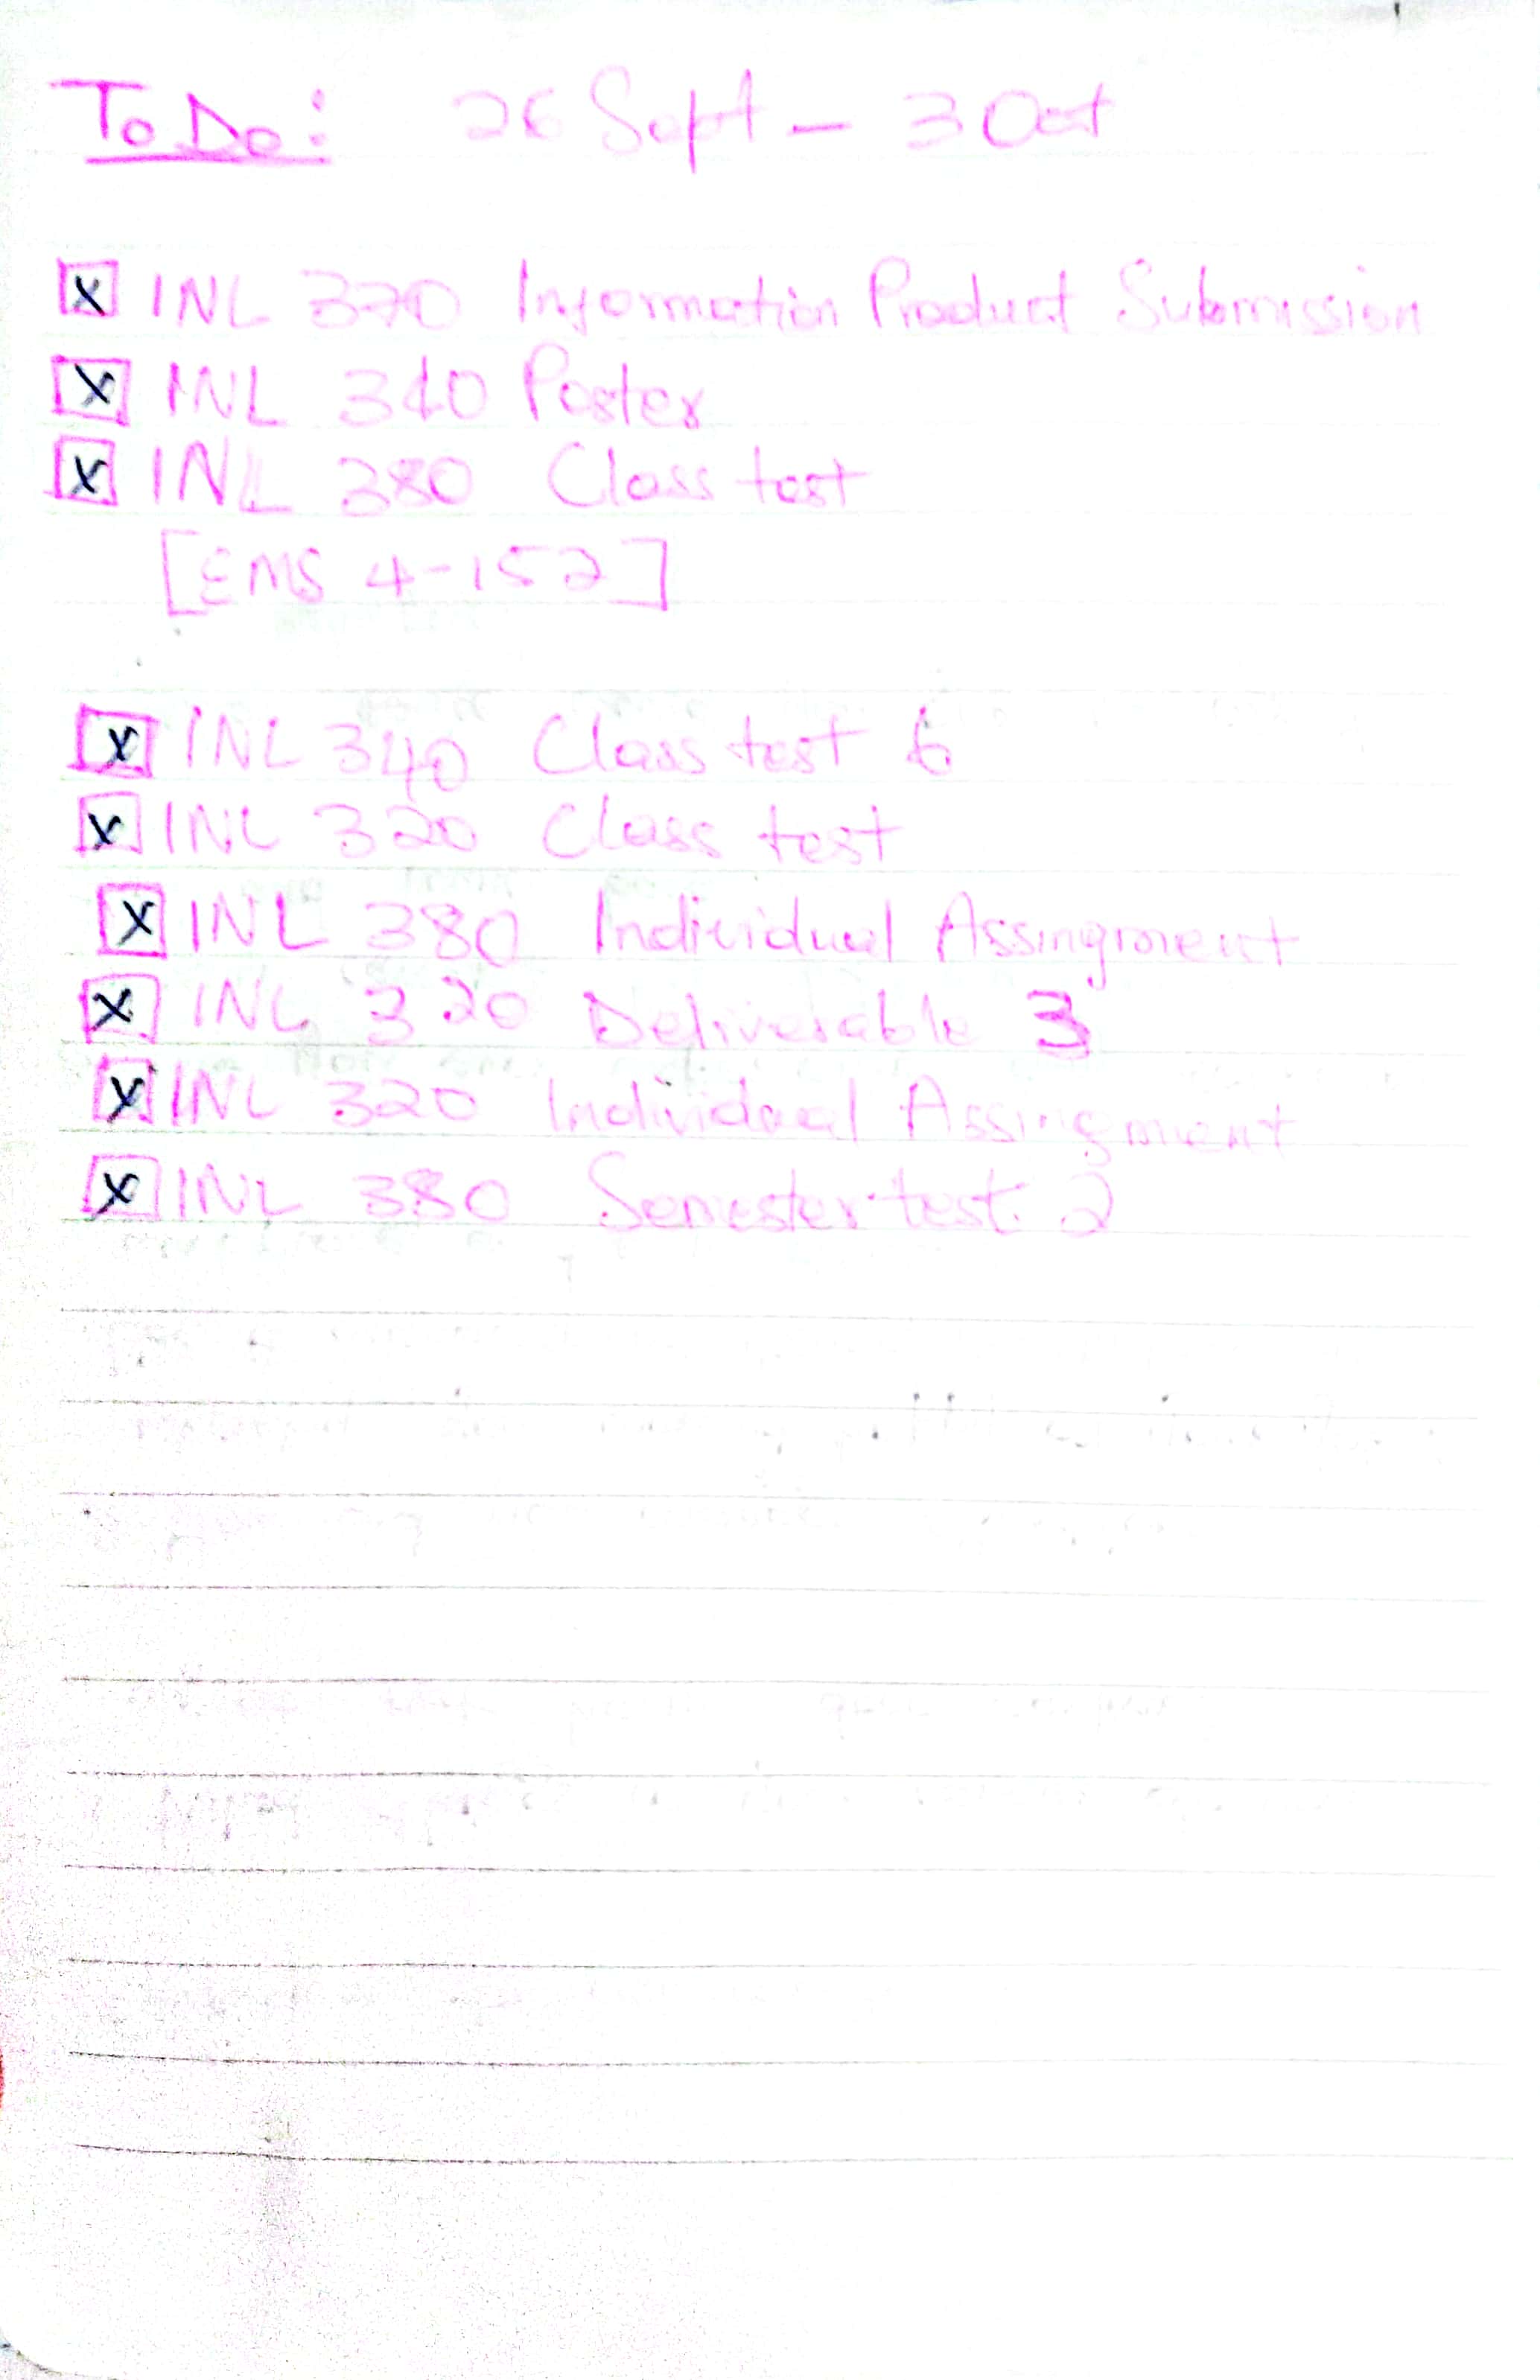 To Do: 26 Sept - 3 Oct
☒ INL 370 Information Product Submission
☒ INL 340 Poster
☒ INL 380 Class test
[EMS 4-152]
☒ INL 340 Class test 6
☒ INL 320 Class test
☒ INL 380 Individual Assingment
☒ INL 320 Deliverable 3
☒ INL 320 Individual Assingment
☒ INL 380 Semester test 2